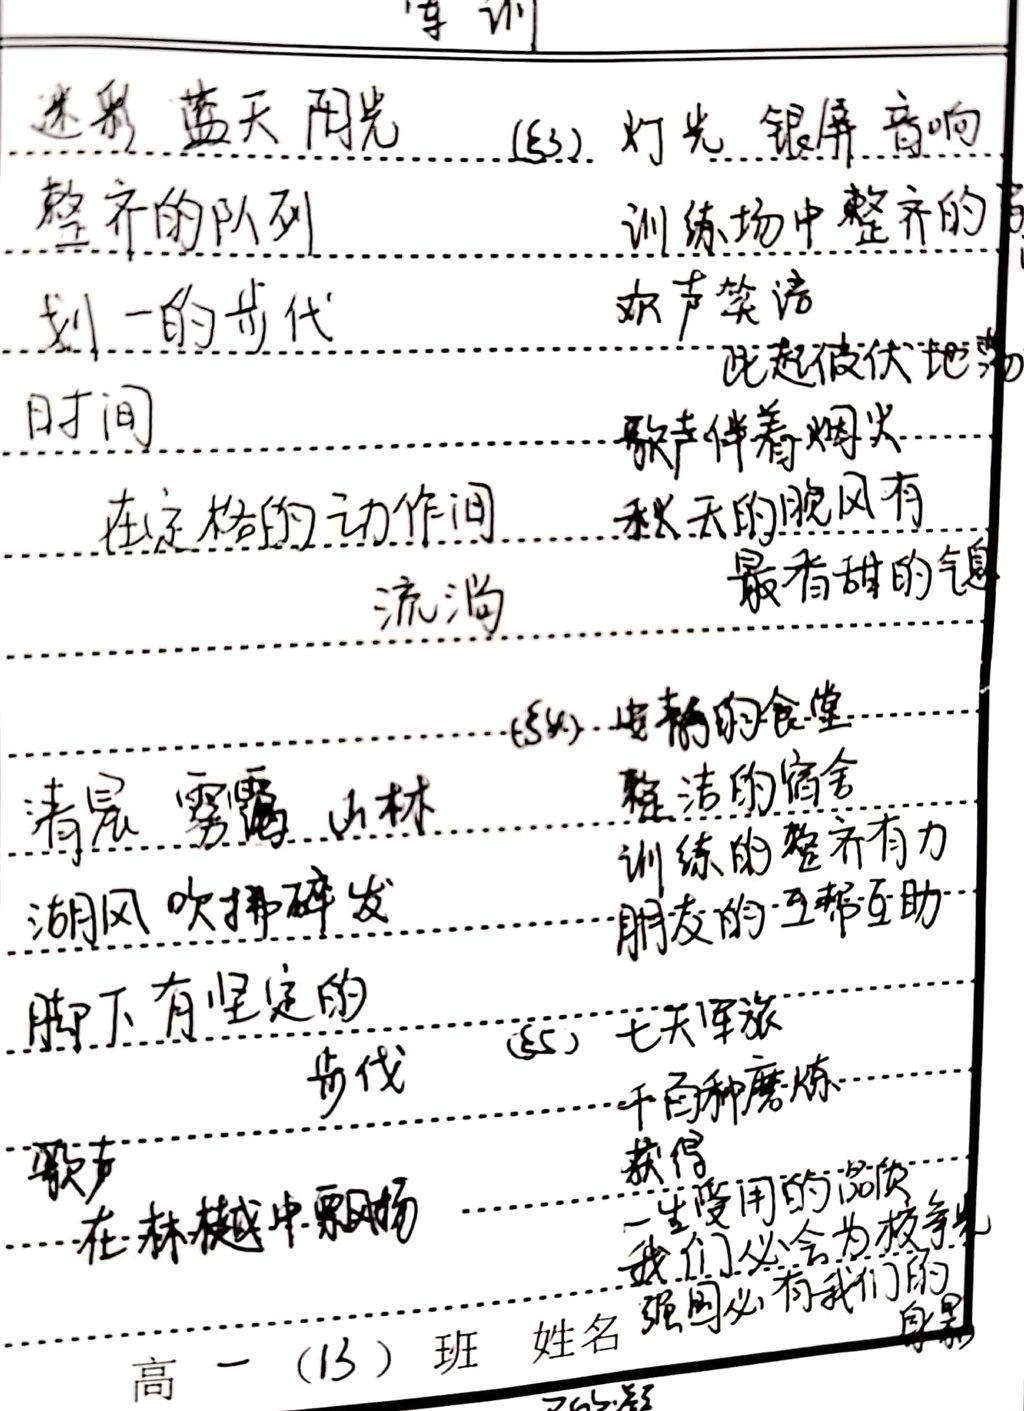 军训
迷彩 蓝天 阳光
整齐的队列
划一的步代
时间
在定格的动作间
流淌
清晨 雾霭 山林
湖风 吹拂碎发
脚下有坚定的
步伐
歌声
在林樾中飘扬
(§3) 灯光 银屏 音响
训练场中整齐的
欢声笑语
此起彼伏地荡
歌声伴着烟火
秋天的晚风有
最香甜的气息
(§4) 安静的食堂
整洁的宿舍
训练的整齐有力
朋友的互帮互助
(§5) 七天军旅
千百种磨炼
获得
一生受用的品质
我们必会为校争光
强国必有我们的
身影
高一(13)班 姓名